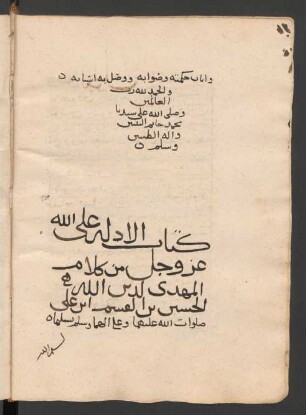 وابان حكمته وصوابه ووصل به اسبابه ه
والحمد لله رب
العالمين
وصلى الله على سيدنا
محمد خاتم النبيين
واله الطيبين
وسلم ه
كتاب الادلة على الله
عز وجل من كلام
المهدي لدين الله
الحسين بن القسم ابن علي
صلوات الله عليهما وعلى ابائهما وسلم تسليما ه